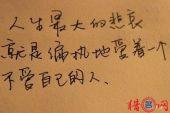 人生最大的悲哀
就是偏执地爱着一个
不爱自己的人.